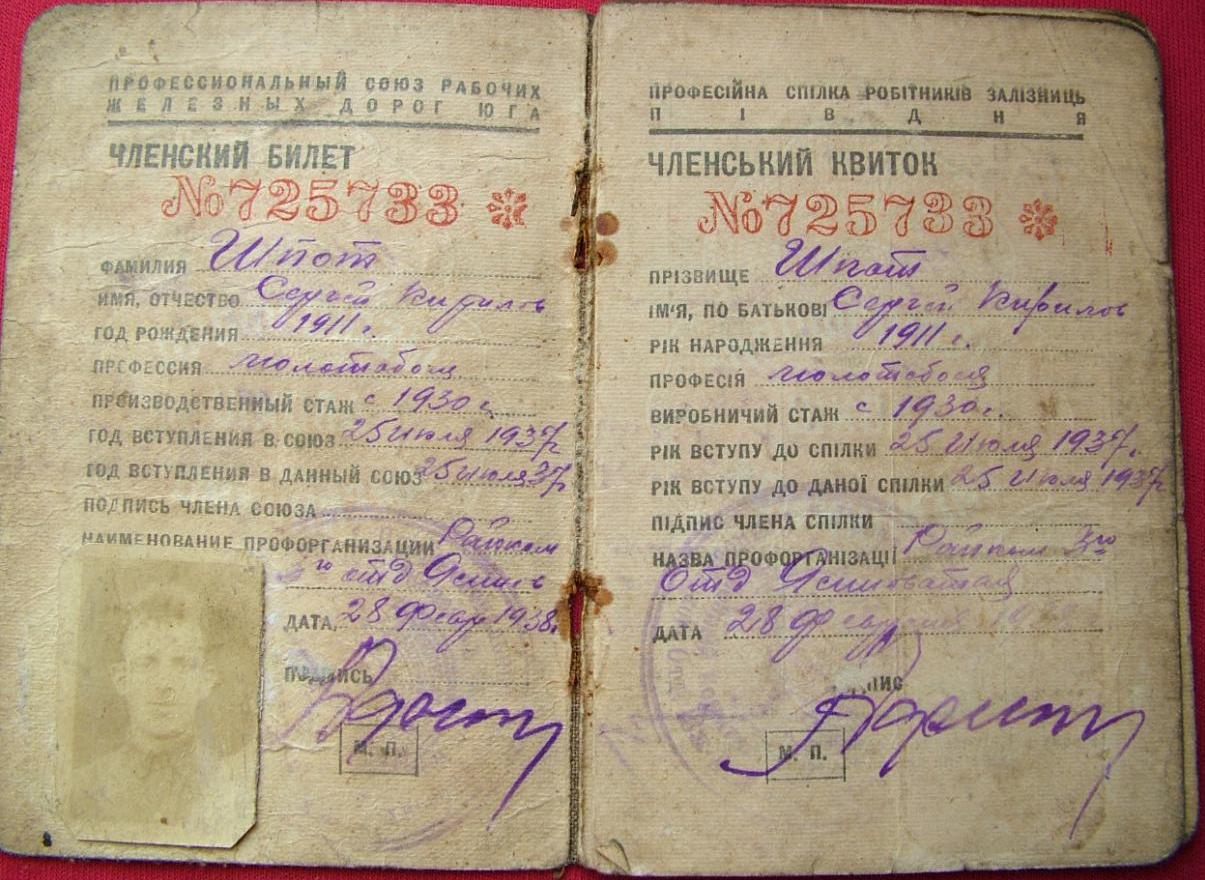 ПРОФЕССИОНАЛЬНЫЙ СОЮЗ РАБОЧИХ
ЖЕЛЕЗНЫХ ДОРОГ ЮГА
ЧЛЕНСКИЙ БИЛЕТ
№725733
ФАМИЛИЯ Шпот
ИМЯ, ОТЧЕСТВО Сергей Кирилов
ГОД РОЖДЕНИЯ 1911 г.
ПРОФЕССИЯ молотобоец
ПРОИЗВОДСТВЕННЫЙ СТАЖ с 1930 г.
ГОД ВСТУПЛЕНИЯ В СОЮЗ 25 Июля 1937 г.
ГОД ВСТУПЛЕНИЯ В ДАННЫЙ СОЮЗ 25 Июля 37 г.
ПОДПИСЬ ЧЛЕНА СОЮЗА
НАИМЕНОВАНИЕ ПРОФОРГАНИЗАЦИИ Райком
3го отд Ясин
ДАТА 28 Февр 1938 г.
ПОДПИСЬ
М. П.
ПРОФЕСІЙНА СПІЛКА РОБІТНИКІВ ЗАЛІЗНИЦЬ
ПІВДНЯ
ЧЛЕНСЬКИЙ КВИТОК
№725733
ПРІЗВИЩЕ Шпот
ІМ'Я, ПО БАТЬКОВІ Сергей Кирилов
РІК НАРОДЖЕННЯ 1911 г.
ПРОФЕСІЯ молотобоец
ВИРОБНИЧИЙ СТАЖ с 1930 г.
РІК ВСТУПУ ДО СПІЛКИ 25 Июля 1937 г.
РІК ВСТУПУ ДО ДАНОЇ СПІЛКИ 25 Июля 1937 г.
ПІДПИС ЧЛЕНА СПІЛКИ
НАЗВА ПРОФОРГАНІЗАЦІЇ Райком 3го
Отд Ясиноватая
ДАТА 28 Февраля
ПІДПИС
М. П.